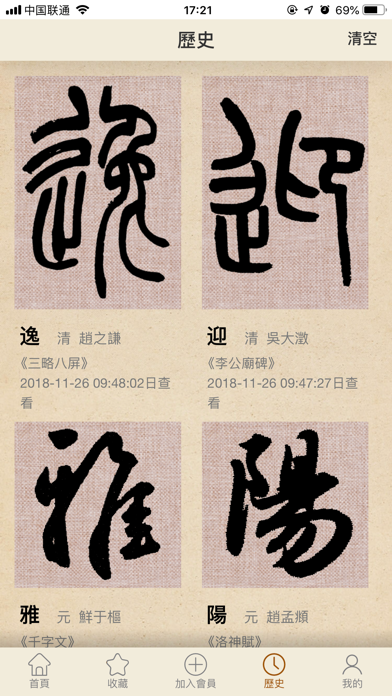 中国联通 17:21 69%
歷史 清空
逸 迎
逸 清 趙之謙
《三略八屏》
2018-11-26 09:48:02日查
看
迎 清 吳大澂
《李公廟碑》
2018-11-26 09:47:27日查
看
雅 陽
雅 元 鮮于樞
《千字文》
陽 元 趙孟頫
《洛神賦》
首頁 收藏 加入會員 歷史 我的